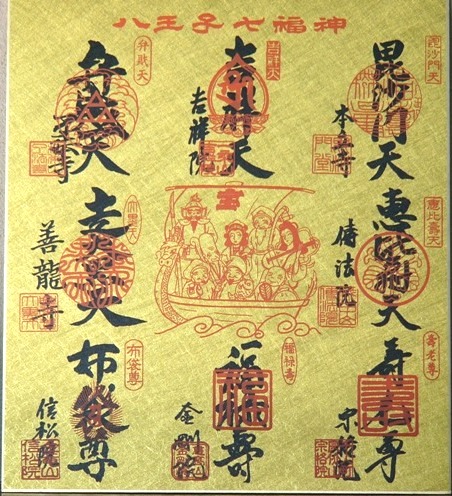 八王子七福神
毘沙門天
毘沙門天
本立寺
吉祥天
吉祥天
吉祥院
弁財天
弁財天
了法寺
恵比寿天
恵比壽天
傳法院
宝
走大黒天
大黒天
善龍寺
壽老尊
寿老尊
宗格院
福禄壽
福禄壽
金剛院
布袋尊
布袋尊
信松院